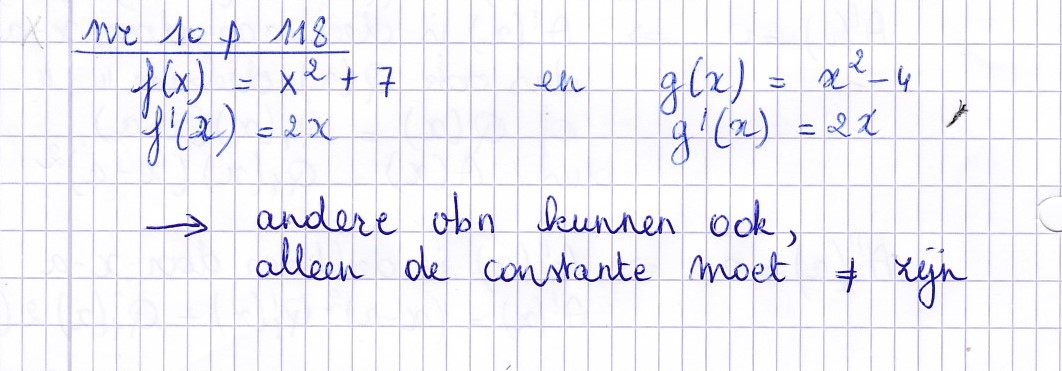 nr 10 p 118
f(x) = x² + 7 en g(x) = x² - 4
f'(x) = 2x g'(x) = 2x
→ andere vbn kunnen ook,
alleen de constante moet ≠ zijn